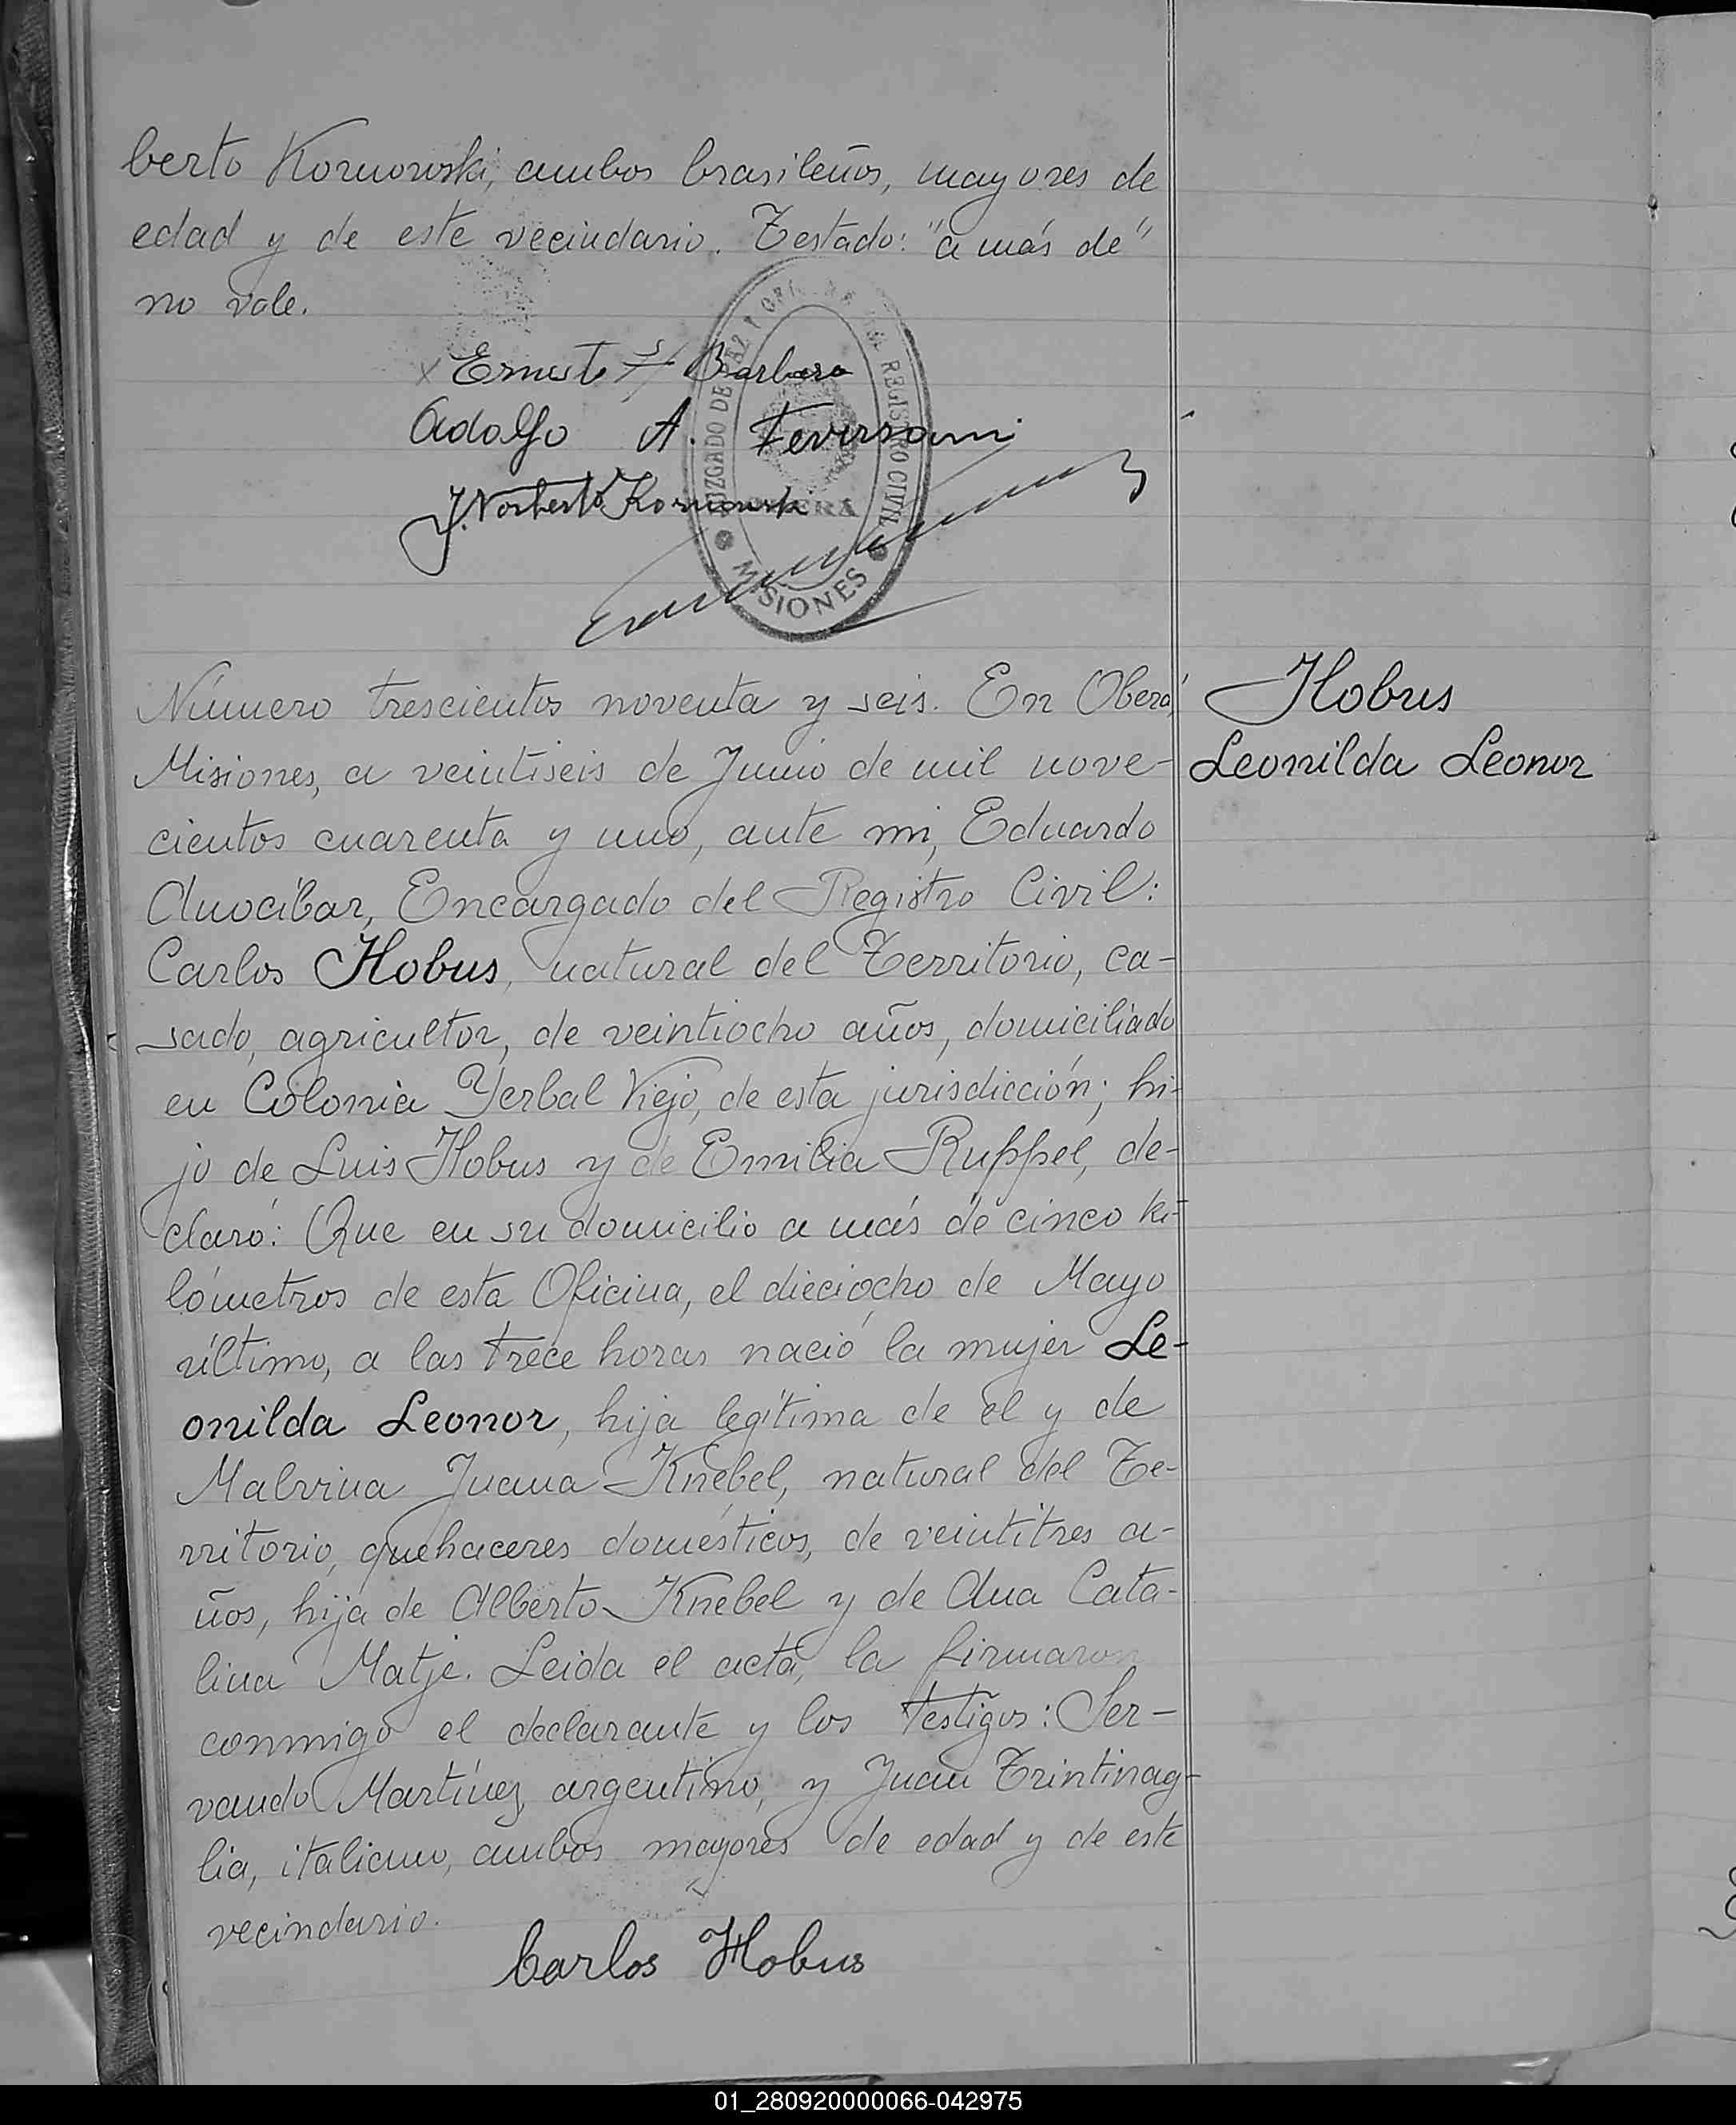 berto Kornowski, ambos brasileños, mayores de
edad y de este vecindario. Testado: "a más de"
no vale.
Ernesto Barbaro
Adolfo A.
J. Norberto Kornowski
JUZGADO DE PAZ Y REGISTRO CIVIL
OBERA
MISIONES
Número trescientos noventa y seis. En Oberá,
Misiones, a veintiseis de Junio de mil nove-
cientos cuarenta y uno, ante mi, Eduardo
Anocíbar, Encargado del Registro Civil:
Carlos Hobus, natural del Territorio, ca-
sado, agricultor, de veintiocho años, domiciliado
en Colonia Yerbal Viejo, de esta jurisdicción; hi-
jo de Luis Hobus y de Emilia Ruppel, de-
claró: Que en su domicilio a más de cinco ki-
lómetros de esta Oficina, el dieciocho de Mayo
último, a las trece horas nació la mujer Le-
onilda Leonor, hija legítima de el y de
Malvina Juana Knebel, natural del Te-
rritorio, quehaceres domésticos, de veintitres a-
ños, hija de Alberto Knebel y de Ana Cata-
lina Matje. Leida el acta, la firmaron
conmigo el declarante y los testigos: Ser-
vando Martínez, argentino, y Juan Trintinag-
lia, italiano, ambos mayores de edad y de este
vecindario.
Carlos Hobus
Hobus
Leonilda Leonor
01_280920000066-042975